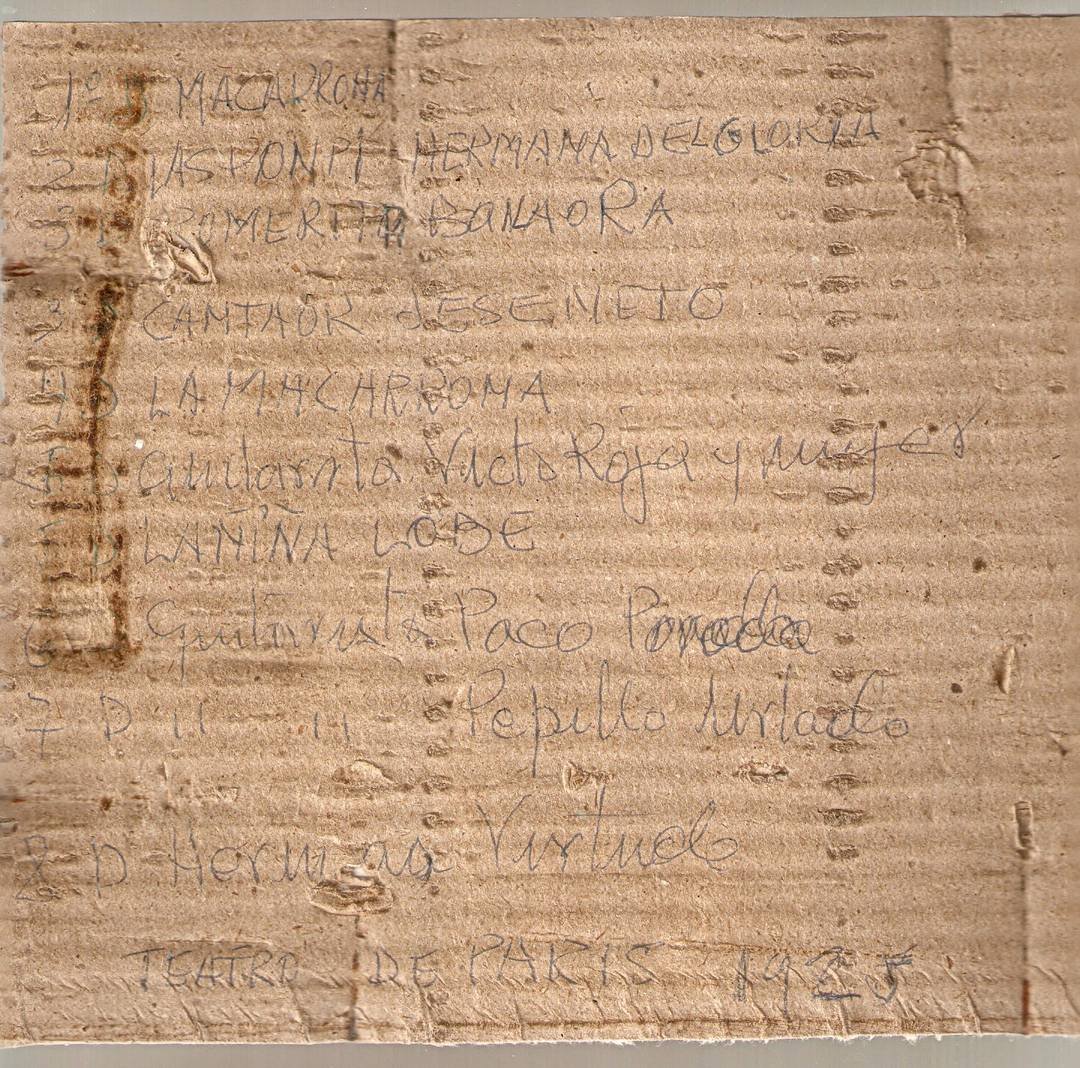 1º D MACARRONA
2 D LAS POMPI HERMANA DEL GLORIA
3 D ROMERITO BAILAORA
3 D CANTAOR JESENETO
4 D LA MACHARRONA
D Guitarrista Victo Roja y mujer
D LA NIÑA LOBE
6 Guitarrista Paco
7 D 11 11 Pepillo Urtado
8 D Hermana Virtude
TEATRO DE PARIS 1925